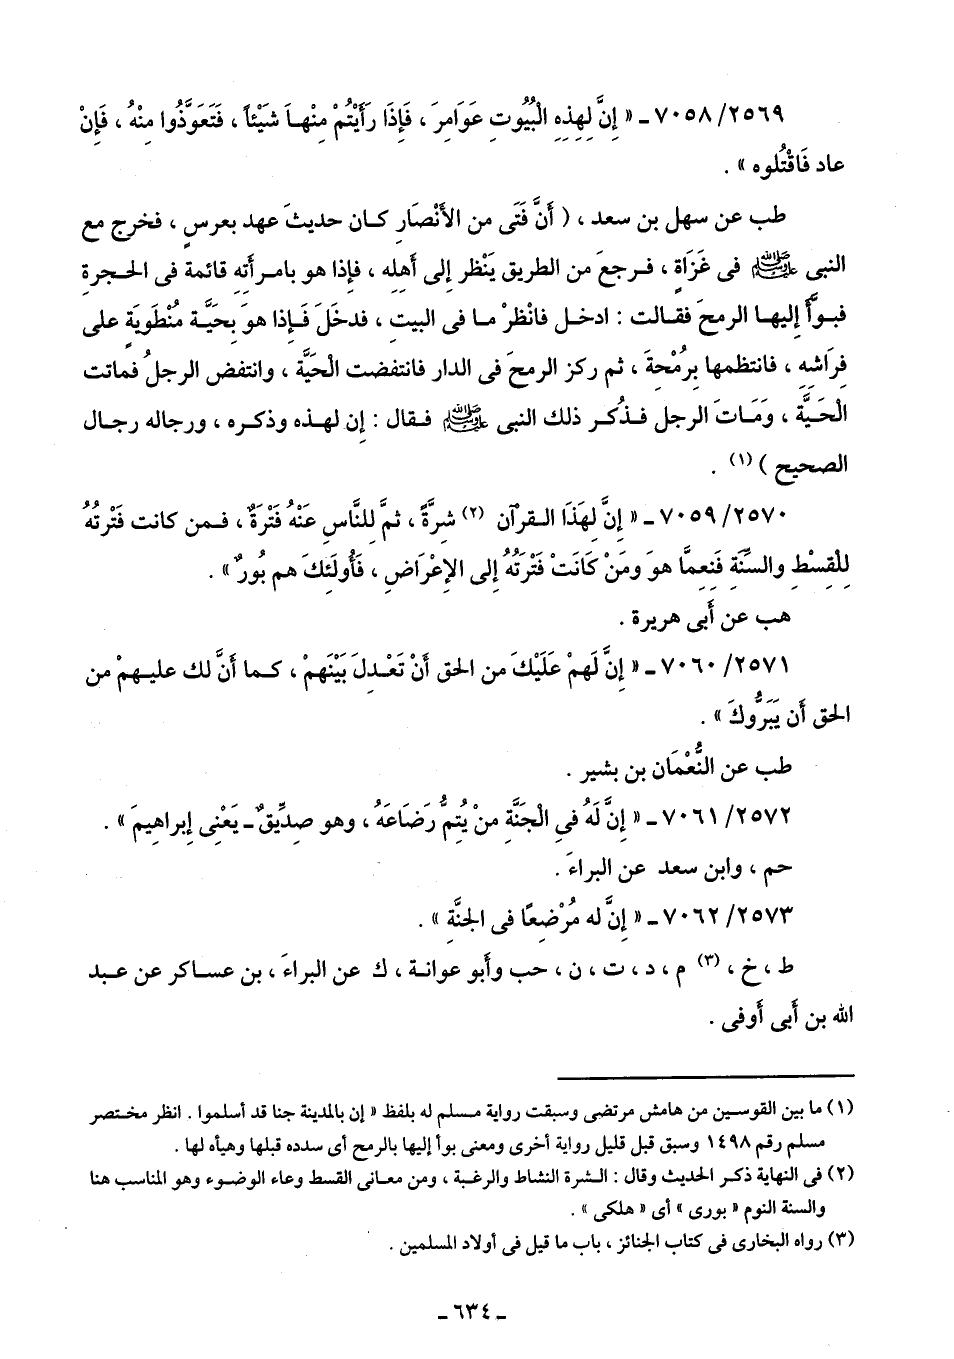 ٧٠٥٨/٢٥٦٩ ـ « إنَّ لِهذِهِ الْبُيُوتِ عَوَامِرَ ، فَإِذَا رَأَيْتُمْ مِنْهـاَ شَيْئاً ، فَتَعَوَّذُوا مِنْهُ ، فَإِنْ
عاد فَاقْتُلُوه » .
طب عن سهل بن سعد ، ( أَنَّ فَتَى من الأَنْصَارِ كـان حديثَ عهد بعرسٍ ، فخرج مع
النبى ﷺ فى غَزَاةٍ ، فـرجعَ من الطريق يَنْظر إلى أَهِلِه ، فإذا هو بامـرأتِهِ قائمة فى الحـجرةِ
فبـوَّأَ إليهـا الرمحَ فقـالت : ادخـل فانْظرْ مـا فى البيتِ ، فدخَلَ فَـإذا هوَ بِحَيَّـة مُنْطَويَةٍ على
فِرَاشِهِ ، فانتظمها بِرُمْحةَ ، ثم ركز الرمحَ فى الدار فانتفضت الْحيَّة ، وانتفض الرجلُ فماتت
الْحَـيَّة ، وَمَـاتَ الرجل فـذُكـر ذلك النبى ﷺ فـقال : إن لهـذه وذكـره ، ورجاله رجـال
الصحيح ) (١) .
٧٠٥٩/٢٥٧٠ ـ « إِنَّ لِهَذَا القـرآن (٢) شِرَّةً ، ثمَّ لِلنَّاسِ عَنْهُ فَتْرَةٌ ، فـمن كانت فَتْرتُهُ
لِلْقِسْطِ والسنَّةِ فَنِعِمَّا هوَ ومَنْ كَانَتْ فَتْرَتُهُ إلى الإعْرَاضِ ، فَأُولَئِكَ هم بُورٌ » .
هب عن أبى هريرة .
٧٠٦٠/٢٥٧١ ـ « إِنَّ لَهمْ عَلَيْكَ من الحق أَنْ تَعْـدِلَ بَيْنَهمْ ، كـما أَنَّ لك عليـهمْ من
الحق أَن يَبَرُّوكَ » .
طب عن النُّعْمَان بن بشير .
٧٠٦١/٢٥٧٢ ـ « إِنَّ لَهُ فى الْجَنَّةِ منْ يُتِمُّ رَضَاعَهُ ، وهو صدِّيقٌ ـ يَعْنى إبراهيمَ » .
حم ، وابن سعد عن البراءَ .
٧٠٦٢/٢٥٧٣ ـ « إِنَّ له مُرْضِعًا فى الجنَّةِ » .
ط ، خ ، (٣) م ، د ، ت ، ن ، حب وأبو عوانـة ، ك عن البراءَ ، بن عساكر عن عبـد
الله بن أَبى أَوفى .
(١) ما بين القوسـين من هامش مرتضى وسبقت رواية مسلم له بلفظ « إن بالمدينة جنا قد أسلموا . انظر مخـتصر
مسلم رقم ١٤٩٨ وسبق قبل قليل رواية أخرى ومعنى بوأ إليها بالرمح أى سدده قبلها وهيأه لها .
(٢) فى النهاية ذكـر الحديث وقال : الـشرة النشاط والرغبة ، ومن معـانى القسط وعاء الوضـوء وهو المناسب هنا
والسنة النوم « بورى » أى « هلكى » .
(٣) رواه البخارى فى كتاب الجنائز ، باب ما قيل فى أولاد المسلمين .
ـ ٦٣٤ ـ